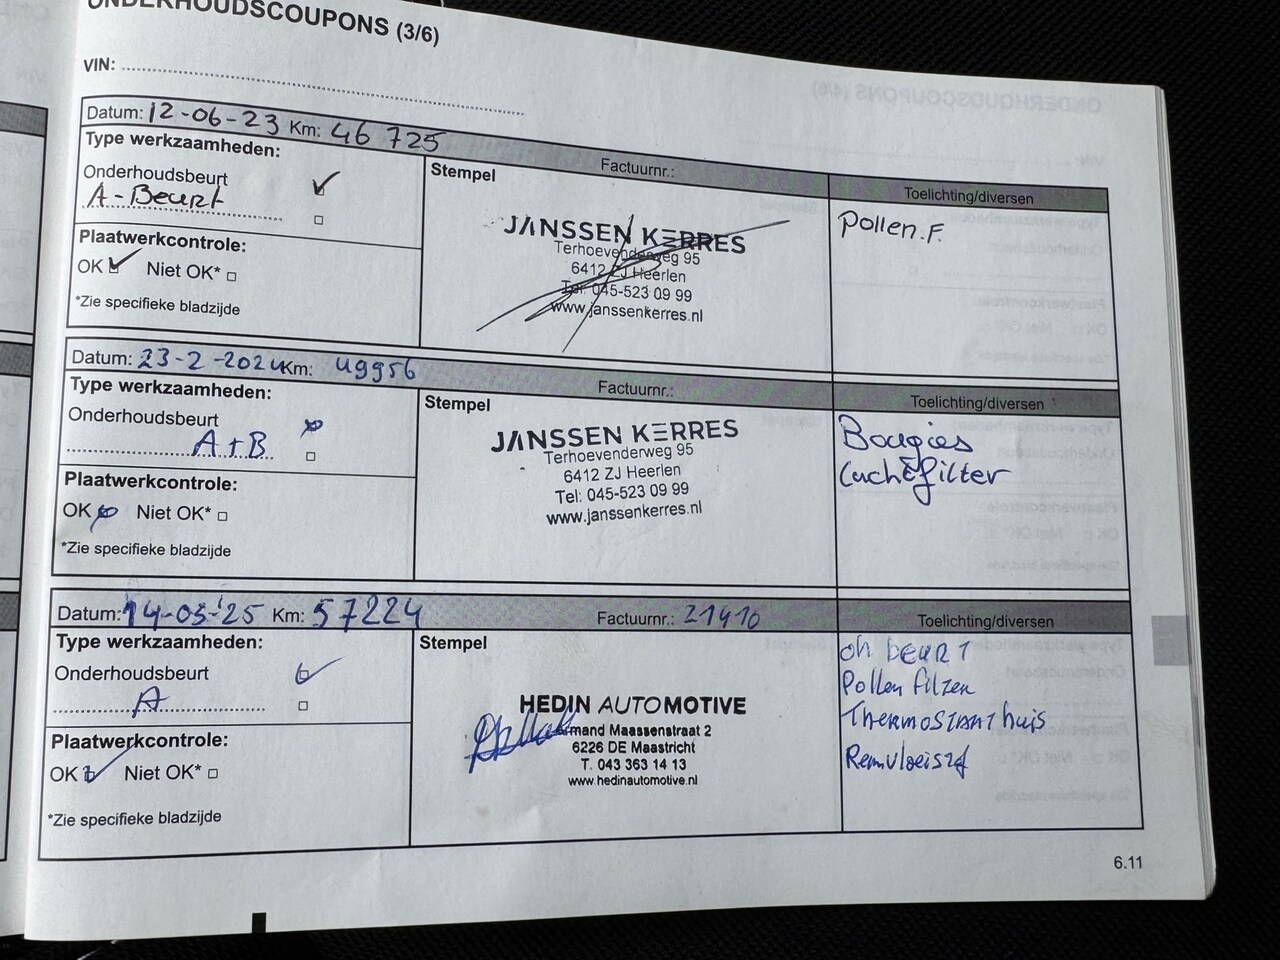 ONDERHOUDSCOUPONS (3/6)
VIN:
Datum: 12-06-23 Km: 46 725
Factuurnr.:
Type werkzaamheden:
Onderhoudsbeurt
A-Beurt
Plaatwerkcontrole:
OK Niet OK*
*Zie specifieke bladzijde
Stempel
JANSSEN KERRES
Terhoevenderweg 95
6412 ZJ Heerlen
Tel: 045-523 09 99
www.janssenkerres.nl
Toelichting/diversen
Pollen.F.
Datum: 23-2-2024 Km: 49956
Factuurnr.:
Type werkzaamheden:
Onderhoudsbeurt
A+B
Plaatwerkcontrole:
OK Niet OK*
*Zie specifieke bladzijde
Stempel
JANSSEN KERRES
Terhoevenderweg 95
6412 ZJ Heerlen
Tel: 045-523 09 99
www.janssenkerres.nl
Toelichting/diversen
Bougies
Luchtfilter
Datum: 14-03-'25 Km: 57224
Factuurnr.: 21410
Type werkzaamheden:
Onderhoudsbeurt
A
Plaatwerkcontrole:
OK Niet OK*
*Zie specifieke bladzijde
Stempel
HEDIN AUTOMOTIVE
mand Maassenstraat 2
6226 DE Maastricht
T. 043 363 14 13
www.hedinautomotive.nl
Toelichting/diversen
oh BEURT
Pollen filzen
Thermostaathuis
Remvloeistof
6.11